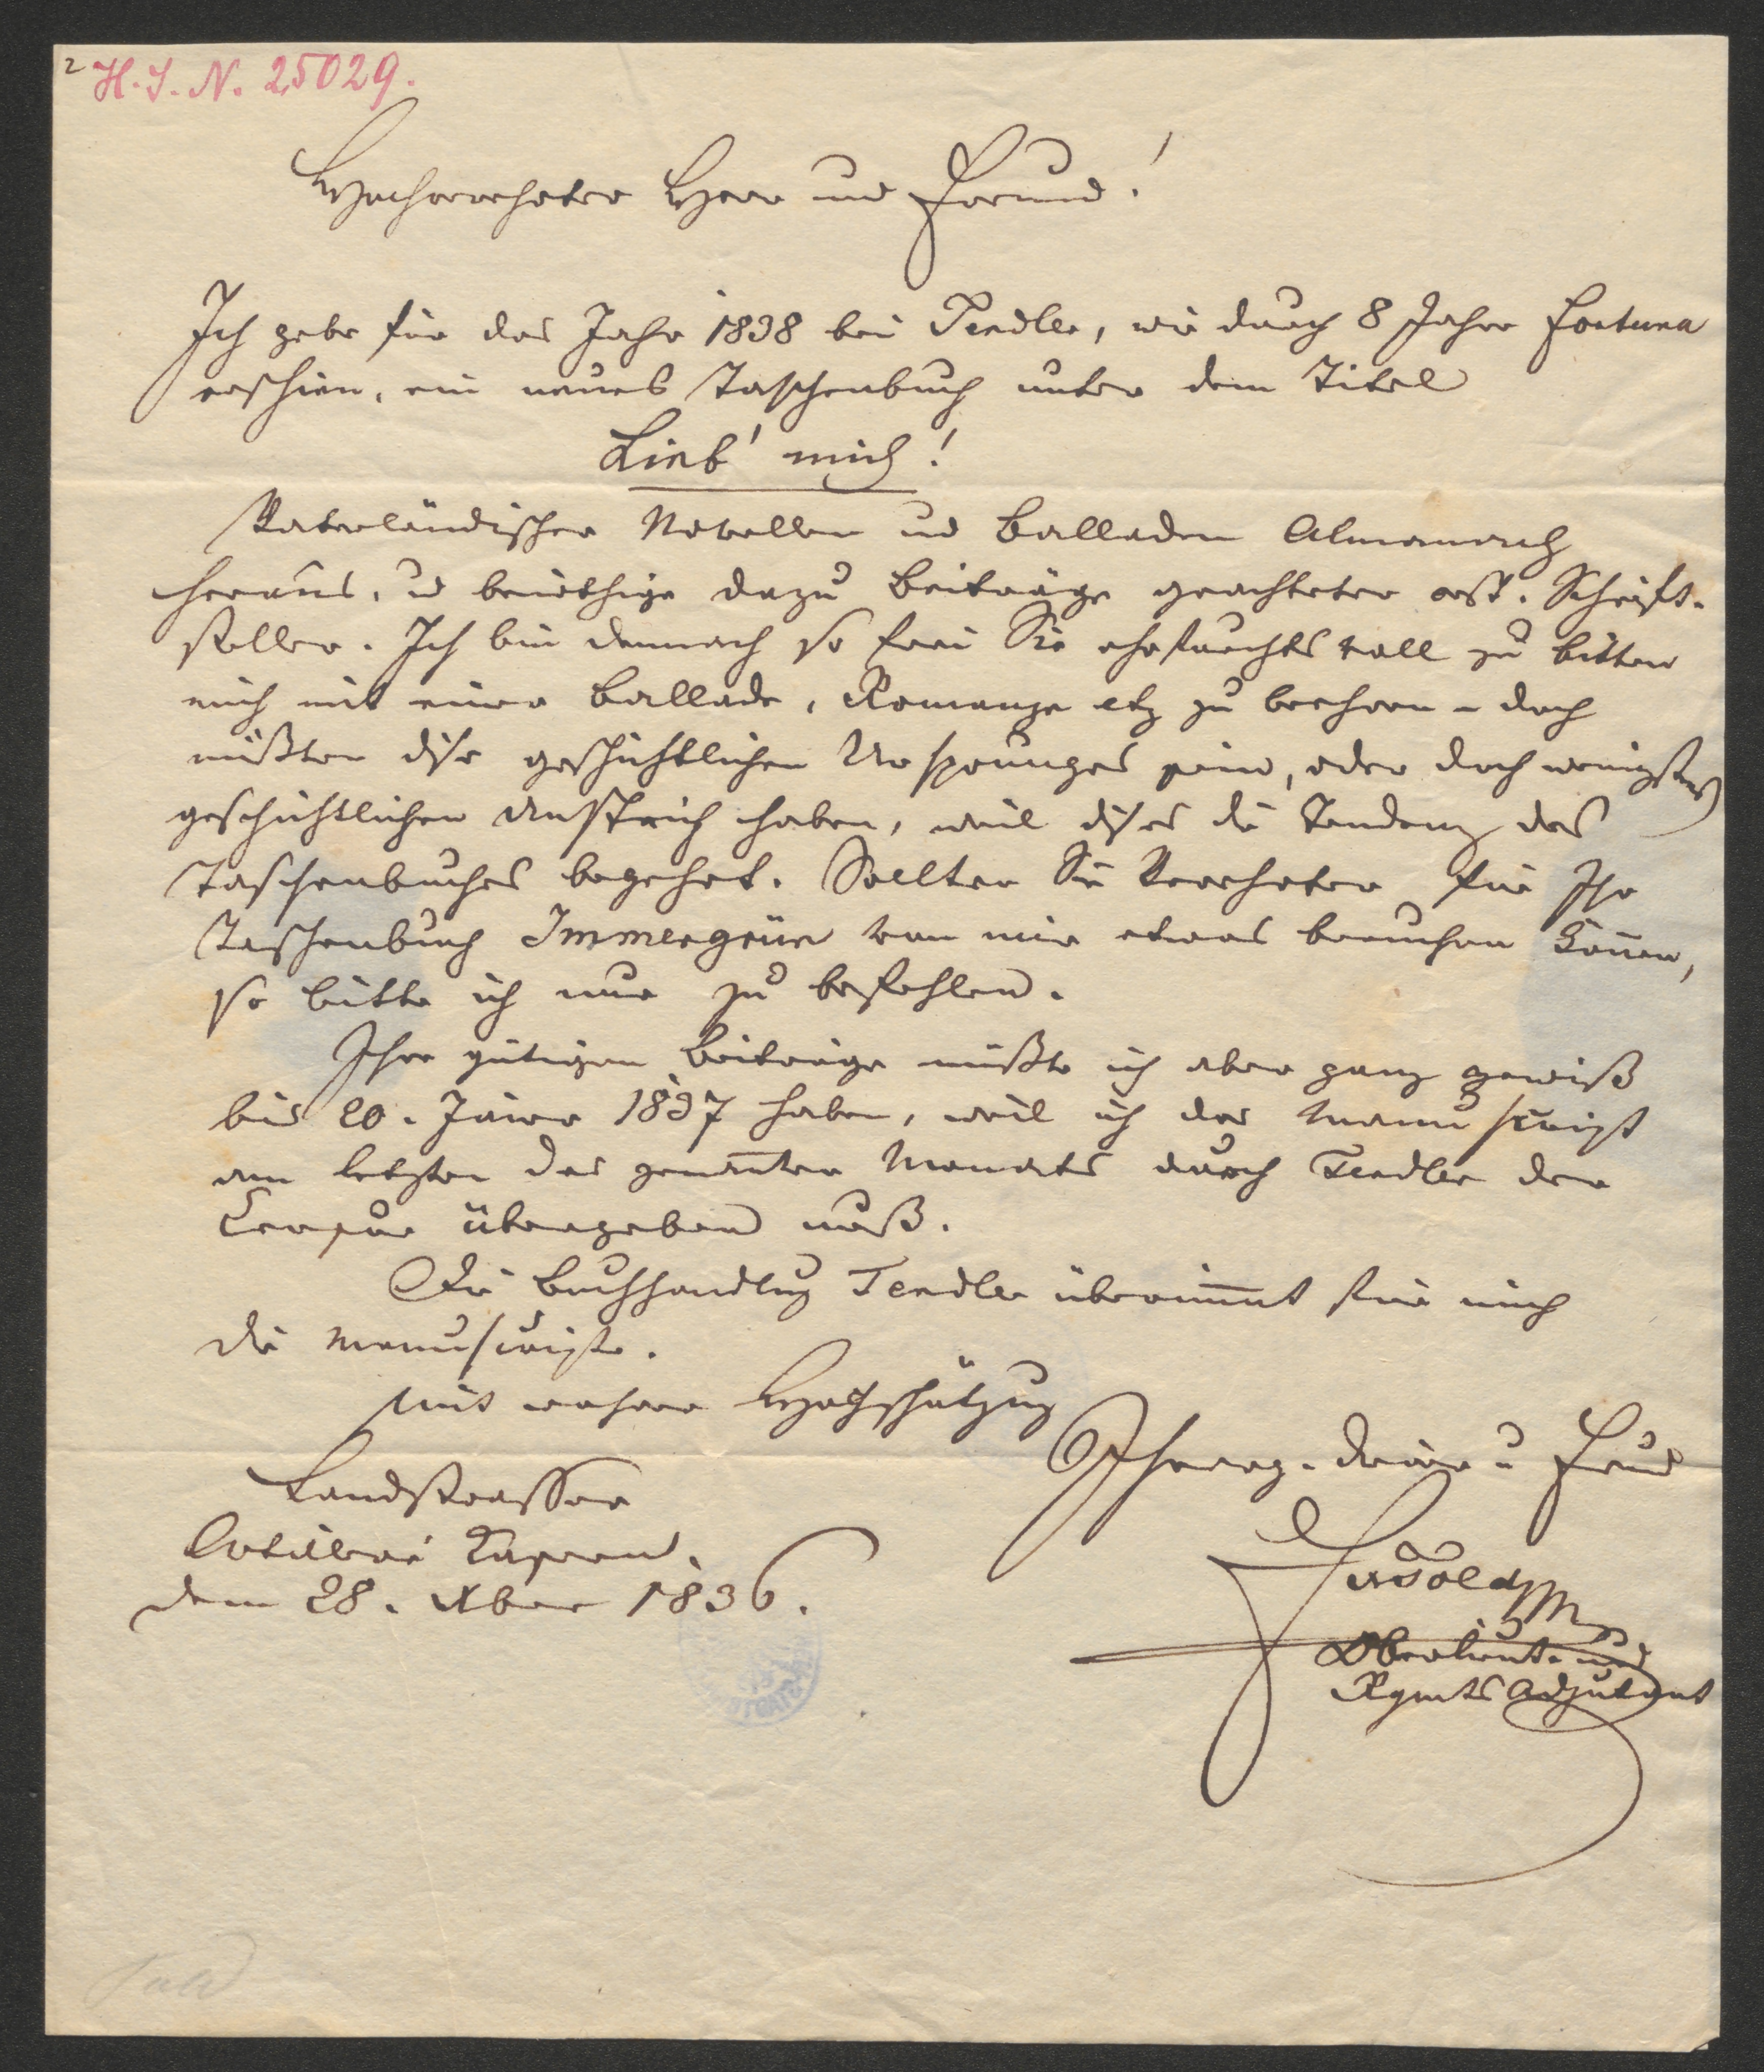 2 H. I. N. 25029.
Hochverehrter Herr und Freund!
Ich gebe für das Jahr 1838 bei Tendler, wie durch 8 Jahre Fortuna
erschien, ein neues Taschenbuch unter dem Titel
Lieb' mich!
Vaterländischer Novellen und Balladen Almanach
heraus, u benöthige dazu Beiträge geachteter öst. Schrift-
steller. Ich bin demnach so frei Sie ehrfurchtsvoll zu bitten
mich mit einer Ballade, Romanze etz zu beehren – doch
müßten diese geschichtlichen Ursprunges sein, oder doch wenigstens
geschichtlichen Anstrich haben, weil dieses die Tendenz des
Taschenbuches begehrt. Sollten Sie Verehrter für Ihr
Taschenbuch Immergrün von mir etwas brauchen können,
so bitte ich nur zu befehlen.
Ihre gütigen Beiträge müßte ich aber ganz gewiß
bis 20. Jäner 1837 haben, weil ich das Manuscript
am letzten des genannten Monats durch Tendler der
Censur übergeben muß.
Die Buchhandlug Tendler übernimmt für mich
die Manuscripte.
Mit wahrer Hochschätzug
Ihr erg. Diener u Freund
Landstrasse
Artillerie Kasern.
dem 28. Xber 1836.
Oberlieut. und
Rgmts Adjutant